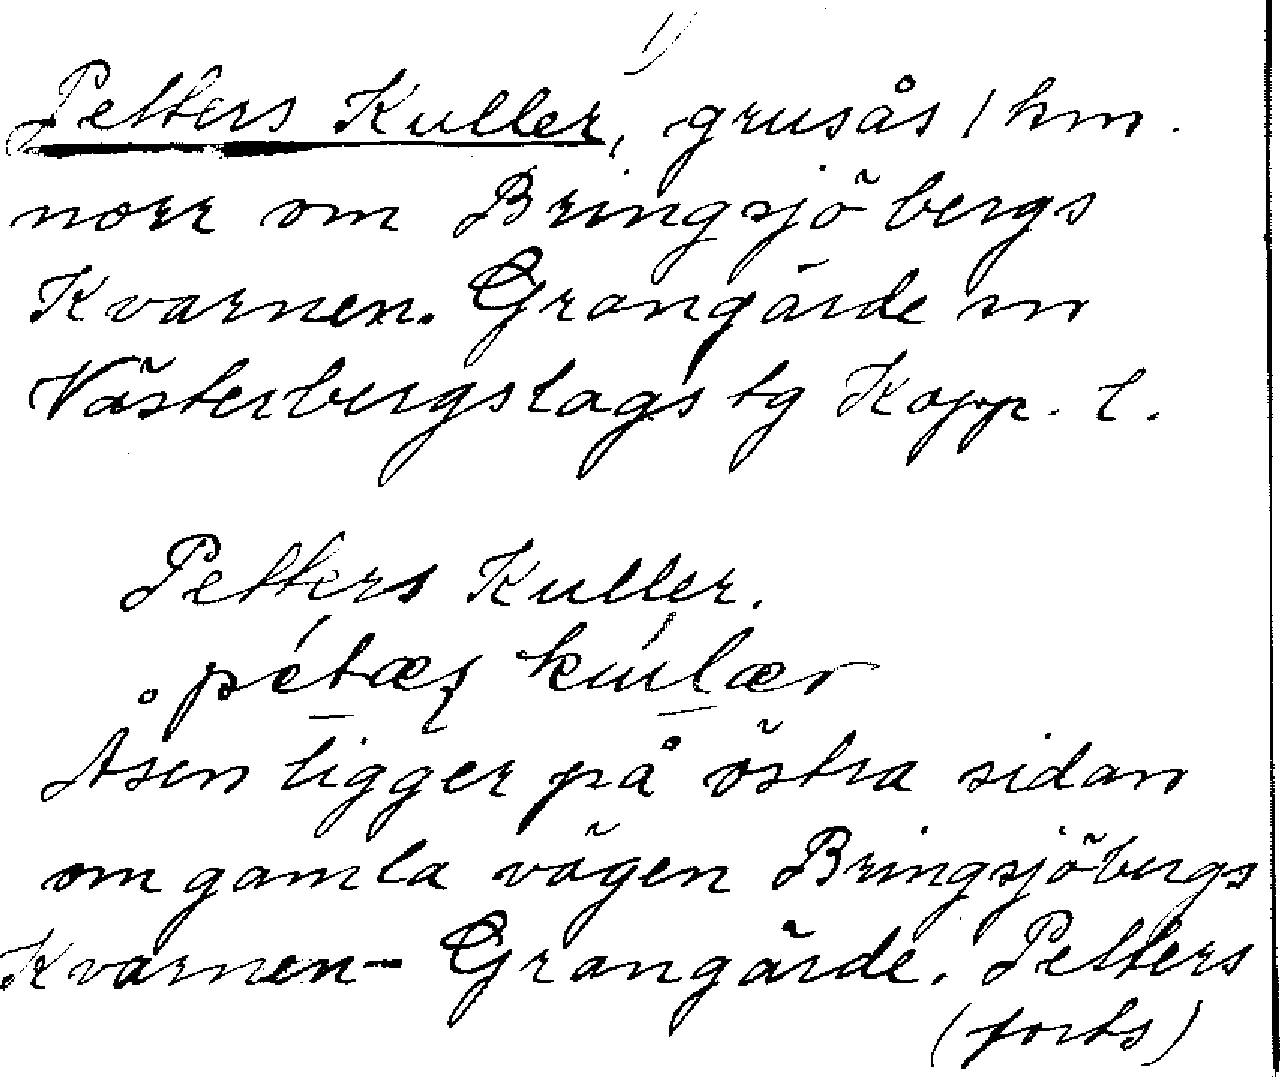 1)
Petters Kuller, grusås 1 km.
norr om Bringsjöbergs
Kvarnen. Grangärde sn
Västerbergslags tg Kopp. l.
Petters Kuller.
Åsen ligger på östra sidan
om gamla vägen Bringsjöbergs
Kvarnen - Grangärde. Petters
(forts)